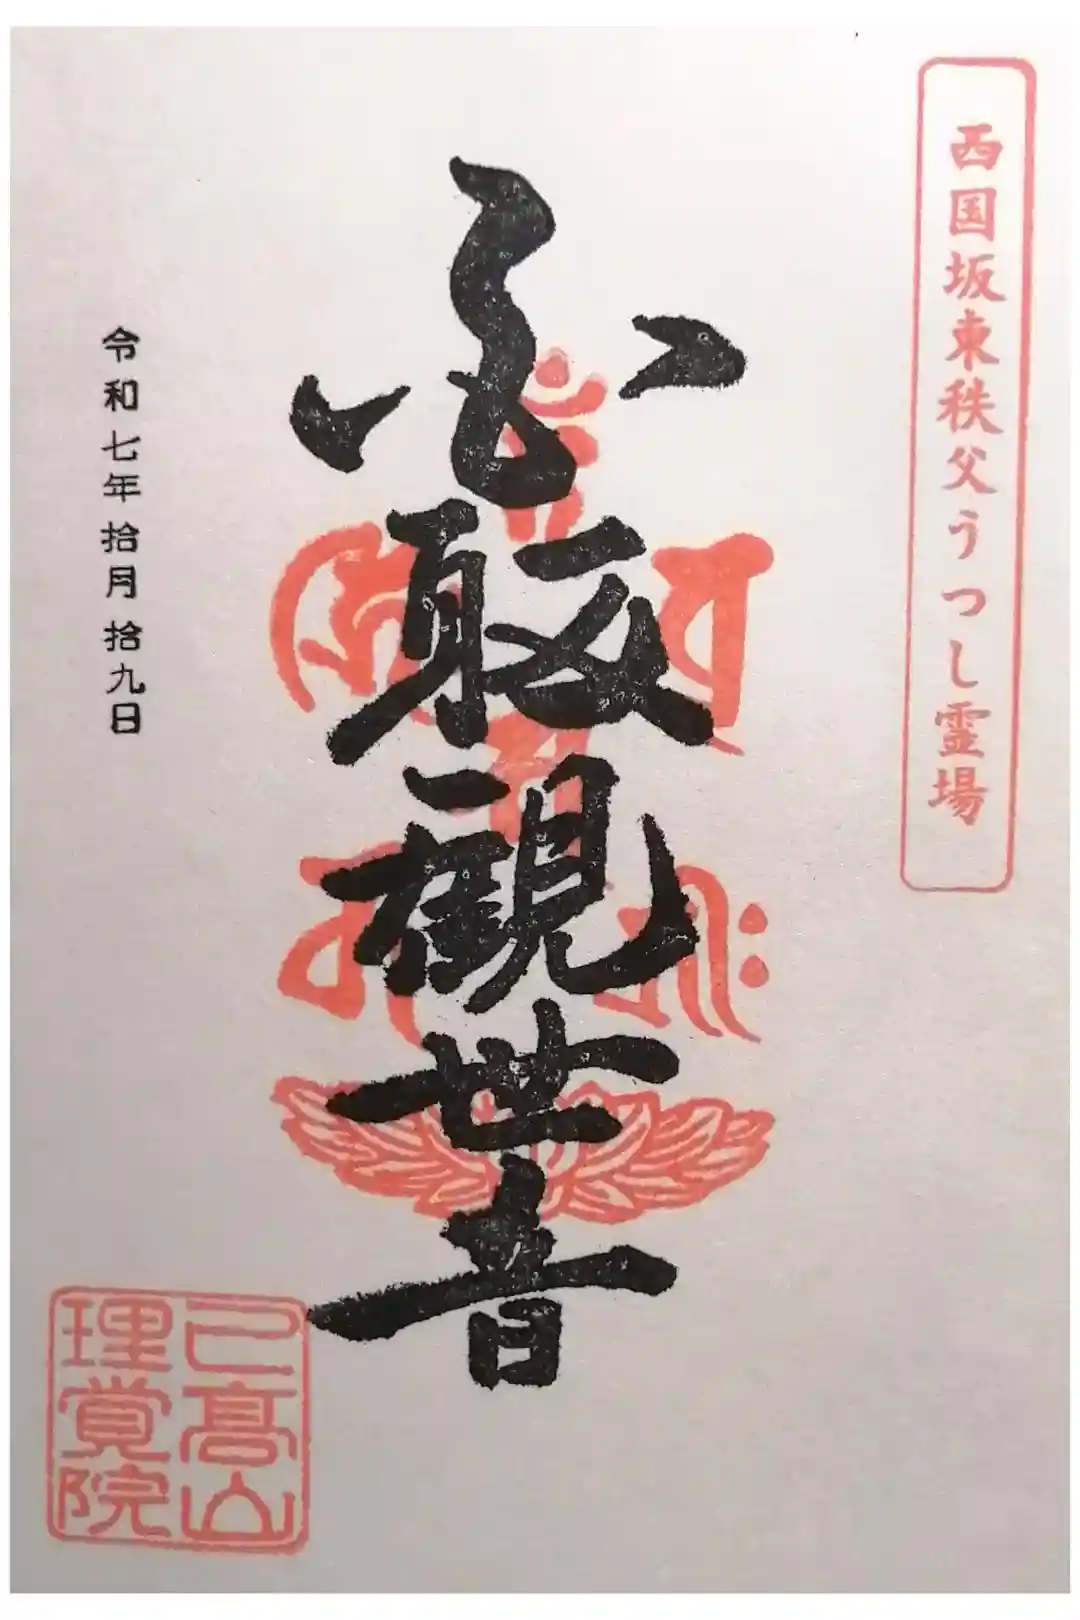 西国坂東秩父うつし霊場
観世音
令和七年拾月拾九日
己高山
理覚院